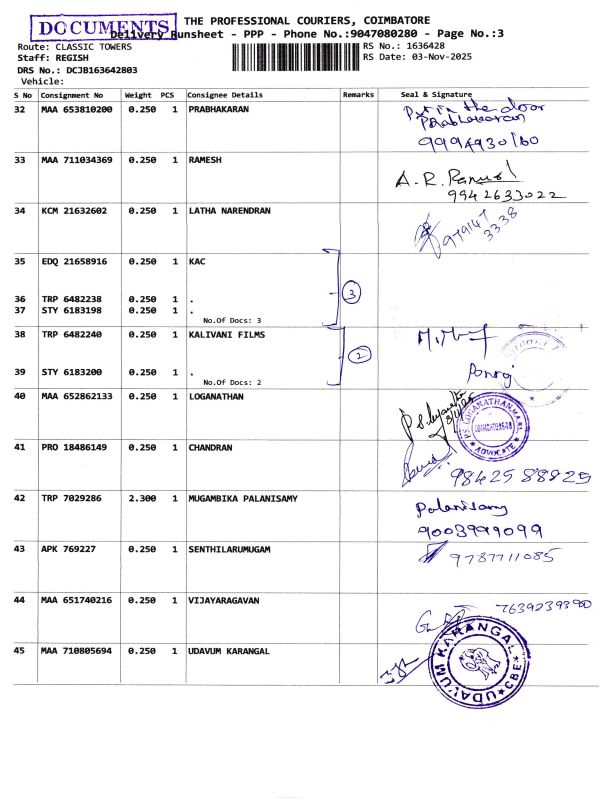 DOCUMENTS
THE PROFESSIONAL COURIERS, COIMBATORE
Delivery Runsheet - PPP - Phone No.:9047080280 - Page No.:3
Route: CLASSIC TOWERS
RS No.: 1636428
Staff: REGISH
RS Date: 03-Nov-2025
DRS No.: DCJB163642803
Vehicle:
S No Consignment No Weight PCS Consignee Details Remarks Seal & Signature
32 MAA 653810200 0.250 1 PRABHAKARAN
Put in the door
Prabhakaran
9994930160
33 MAA 711034369 0.250 1 RAMESH
A. R. Ramesh
9942633022
34 KCM 21632602 0.250 1 LATHA NARENDRAN
979147
3338
35 EDQ 21658916 0.250 1 KAC
36 TRP 6482238 0.250 1 .
3
37 STY 6183198 0.250 1 .
No.Of Docs: 3
38 TRP 6482240 0.250 1 KALIVANI FILMS
2
39 STY 6183200 0.250 1 .
No.Of Docs: 2
40 MAA 652862133 0.250 1 LOGANATHAN
PS LOGANATHAN
ADVOCATE
41 PRO 18486149 0.250 1 CHANDRAN
98425 88825
42 TRP 7029286 2.300 1 MUGAMBIKA PALANISAMY
Palanisamy
9003999099
43 APK 769227 0.250 1 SENTHILARUMUGAM
9787711085
44 MAA 651740216 0.250 1 VIJAYARAGAVAN
7639239390
45 MAA 710805694 0.250 1 UDAVUM KARANGAL
UDAVUM KARANGAL
CBE